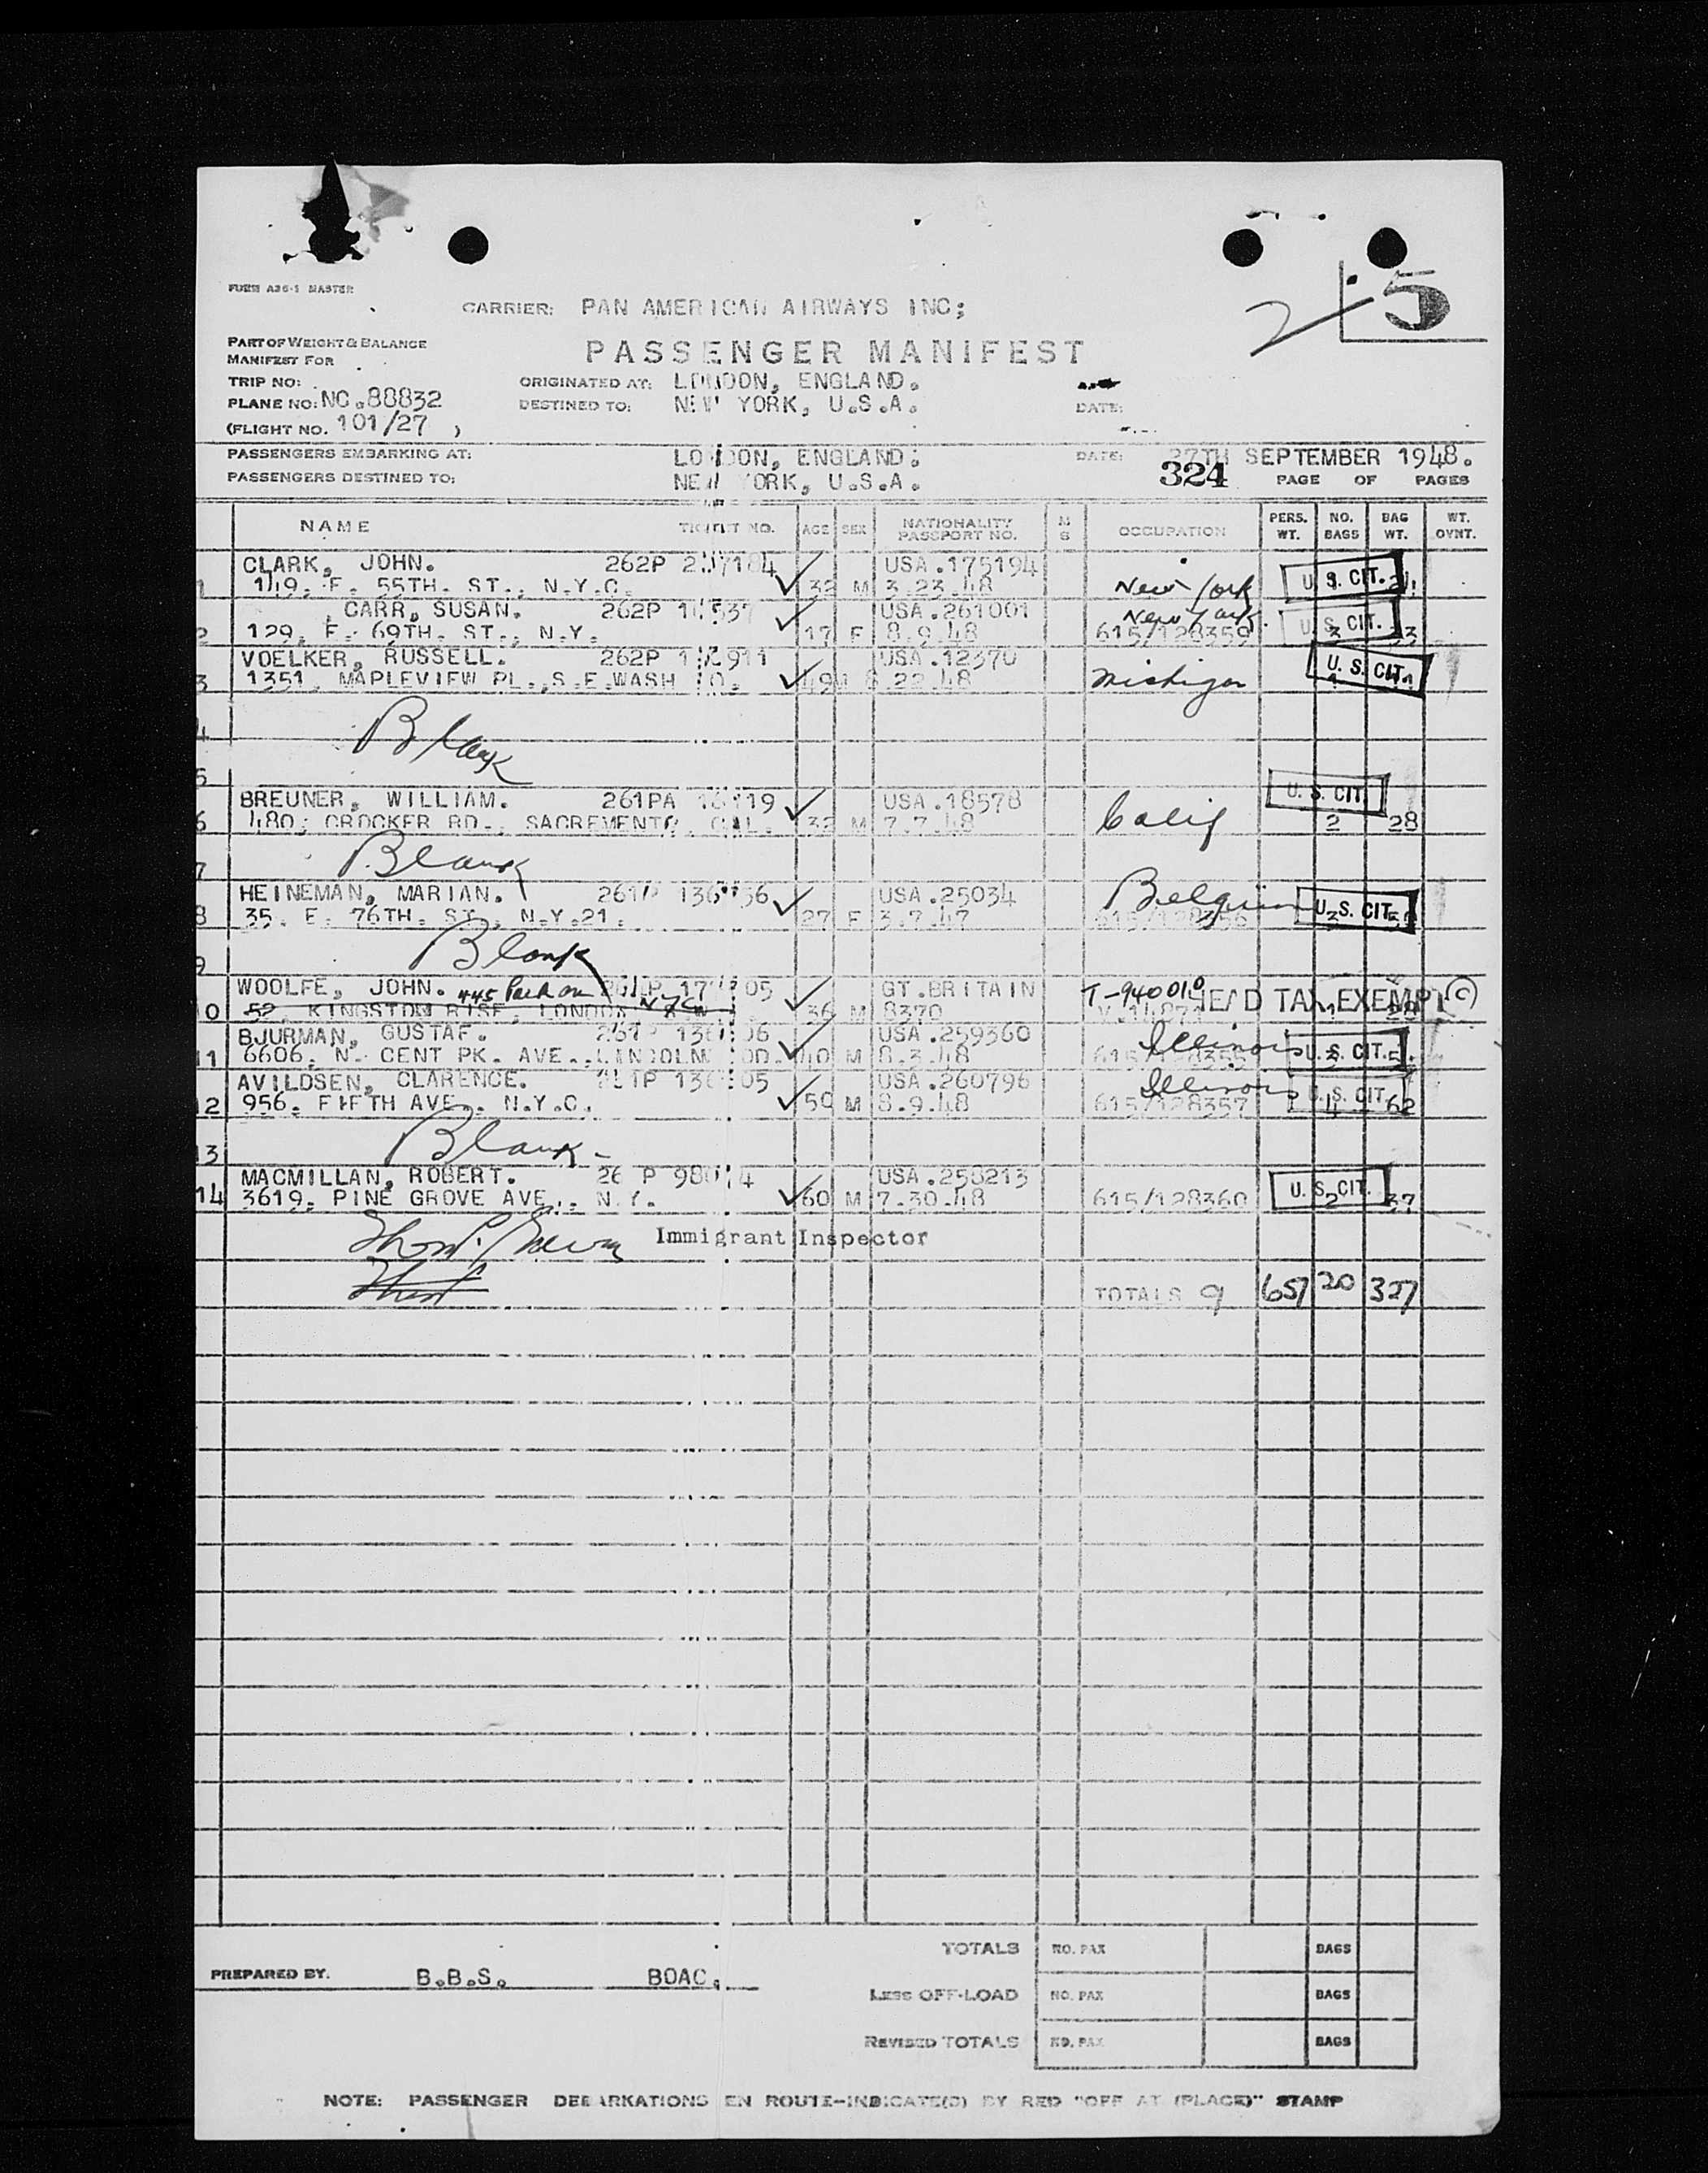 FORM A36-1 MASTER
CARRIER: PAN AMERICAN AIRWAYS INC;
2 5
PART OF WEIGHT & BALANCE
MANIFEST FOR
PASSENGER MANIFEST
TRIP NO:
ORIGINATED AT: LONDON, ENGLAND.
PLANE NO: NC.88832
DESTINED TO: NEW YORK, U.S.A.
DATE:
(FLIGHT NO. 101/27 )
PASSENGERS EMBARKING AT: LONDON, ENGLAND.
DATE: 27TH SEPTEMBER 1948.
PASSENGERS DESTINED TO: NEW YORK, U.S.A.
324 PAGE OF PAGES
NAME TICKET NO. AGE SEX NATIONALITY PASSPORT NO. M S OCCUPATION PERS. WT. NO. BAGS BAG WT. WT. OVNT.
CLARK, JOHN. 262P USA.175194
1 149. E. 55TH. ST., N.Y.C. 32 M 3.23.48 New York U.S. CIT.
CARR, SUSAN. 262P USA.261001 New York
2 129. E. 69TH. ST., N.Y. 17 F 8.9.48 615/128359 U.S. CIT. 3
VOELKER, RUSSELL. 262P USA.12370
3 1351. MAPLEVIEW PL.,S.E.WASH 49 22.48 Michigan U. S. CIT.
4 Blank
5
BREUNER, WILLIAM. 261PA USA.18578 U.S. CIT
6 480; CROCKER RD., SACREMENTO. CAL. 32 M 7.7.48 Calif 2 28
7 Blank
HEINEMAN, MARIAN. USA.25034 Belgium
8 35. E. 76TH. ST., N.Y.21. 27 F 3.7.47 615/128356 U.S. CIT.
9 Blank
WOOLFE, JOHN. 445 Park av NYC GT.BRITAIN T-940010 HEAD TAX EXEMPT (C)
10 52. KINGSTON RISE, LONDON 36 M 8370
BJURMAN, GUSTAF. USA.259360 Illinois
11 6606. N. CENT PK. AVE., LINCOLNWOOD. 40 M 8.3.48 615/128355 U.S. CIT.
AVILDSEN, CLARENCE. USA.260796 Illinois
12 956. FIFTH AVE., N.Y.C. 50 M 8.9.48 615/128357 U.S. CIT. 4 62
13 Blank
MACMILLAN, ROBERT. USA.258213
14 3619. PINE GROVE AVE., N.Y. 60 M 7.30.48 615/128360 U.S. CIT. 2 37
Immigrant Inspector
TOTALS 9 657 20 327
TOTALS NO. PAX BAGS
PREPARED BY. B.B.S. BOAC.
LESS OFF-LOAD NO. PAX BAGS
REVISED TOTALS NO. PAX BAGS
NOTE: PASSENGER DEBARKATIONS EN ROUTE-INDICATE(D) BY RED "OFF AT (PLACE)" STAMP